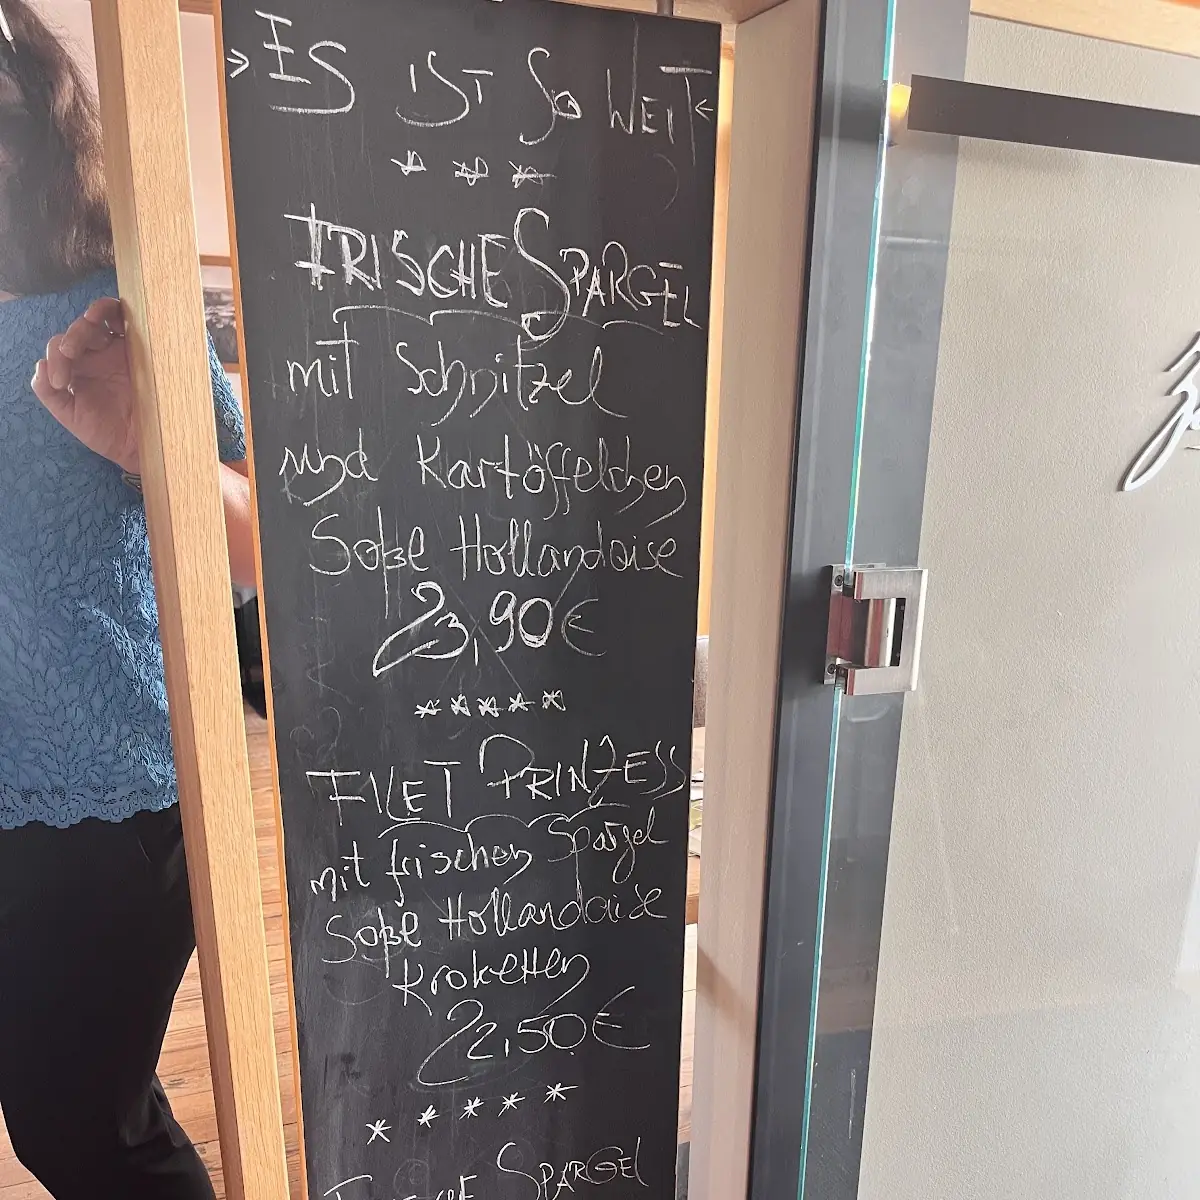 → ES IST SO WEIT ←
* * *
FRISCHE SPARGEL
mit Schnitzel
und Kartöffelchen
Soße Hollandaise
23,90€
*****
FILET PRINZESS
mit frischen Spargel
Soße Hollandaise
Kroketten
22,50€
* * * * *
SPARGEL